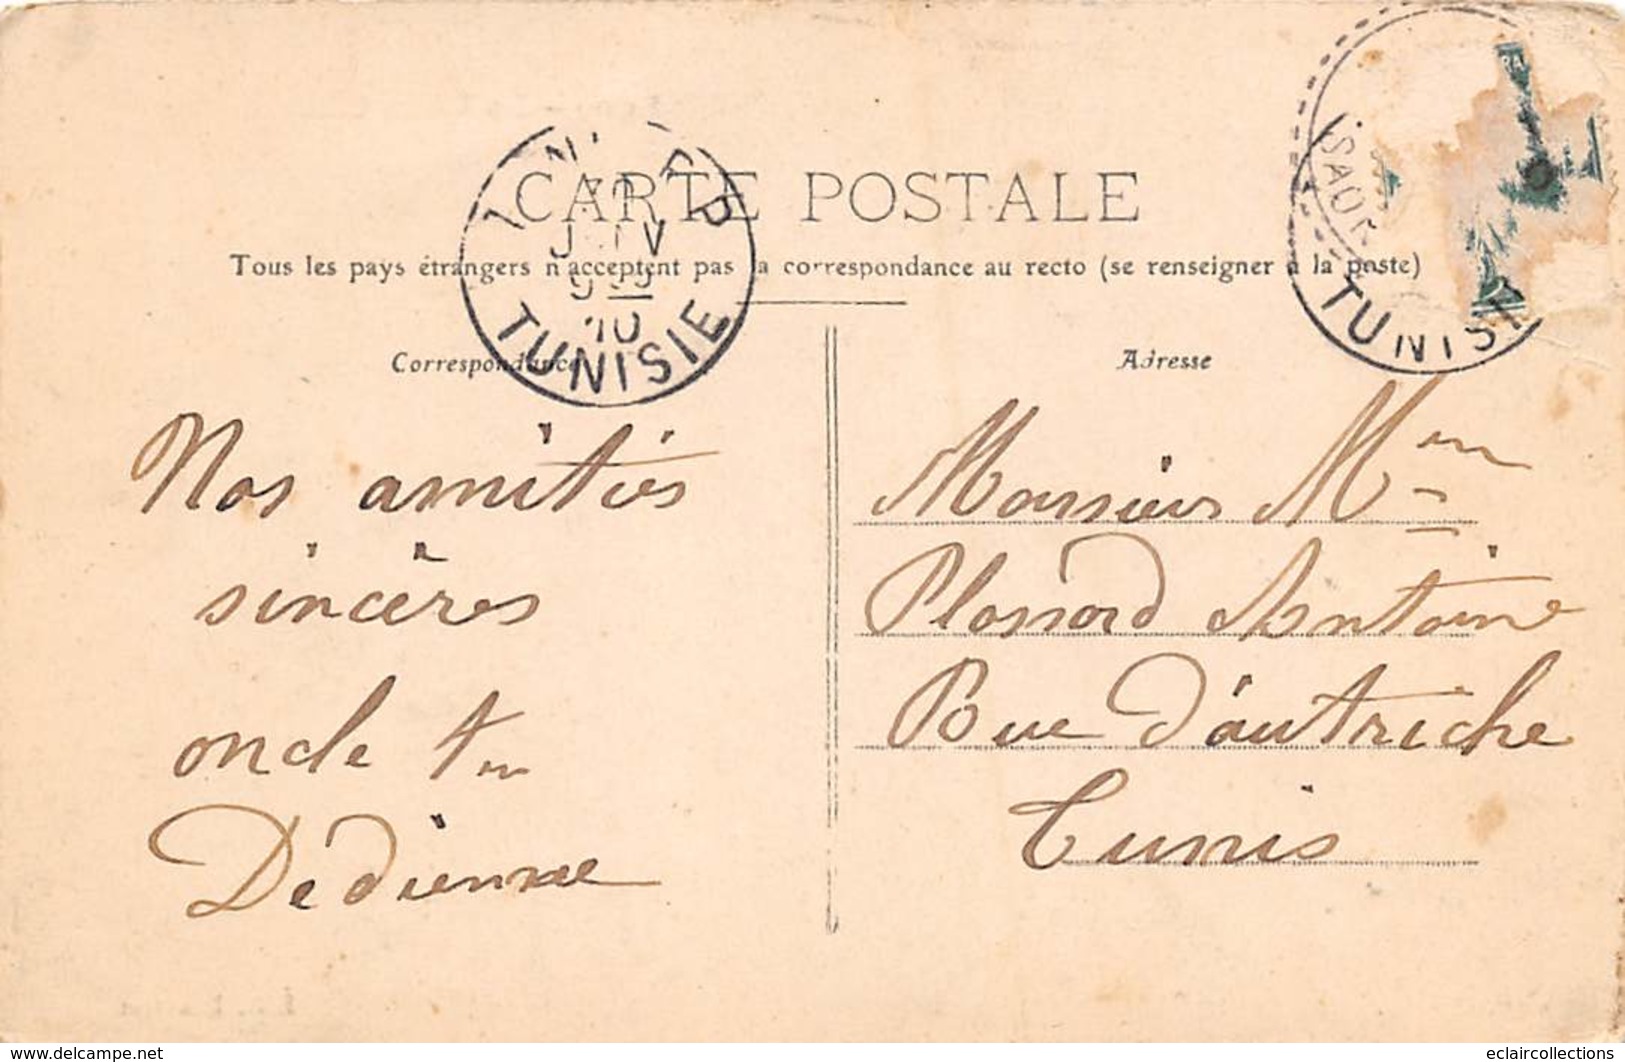 CARTE POSTALE
Tous les pays étrangers n'acceptent pas la correspondance au recto (se renseigner à la poste)
Correspondance
Adresse
TUNISIE
10
TUNISIE
Nos amitiés
sincères
oncle
Dedienne
Monsieur Mme
Plossard Antoine
Rue d'autriche
Tunis
www.delcampe.net
eclaircollections